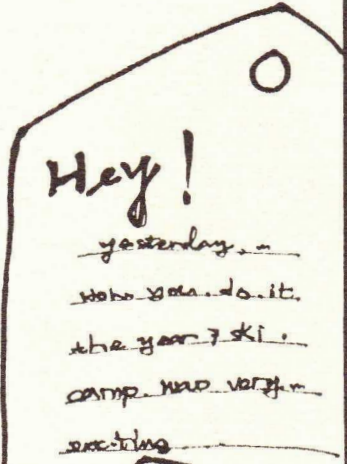 Hey!
yesterday,
how you do it.
the year 7 ski.
camp. was very
exciting